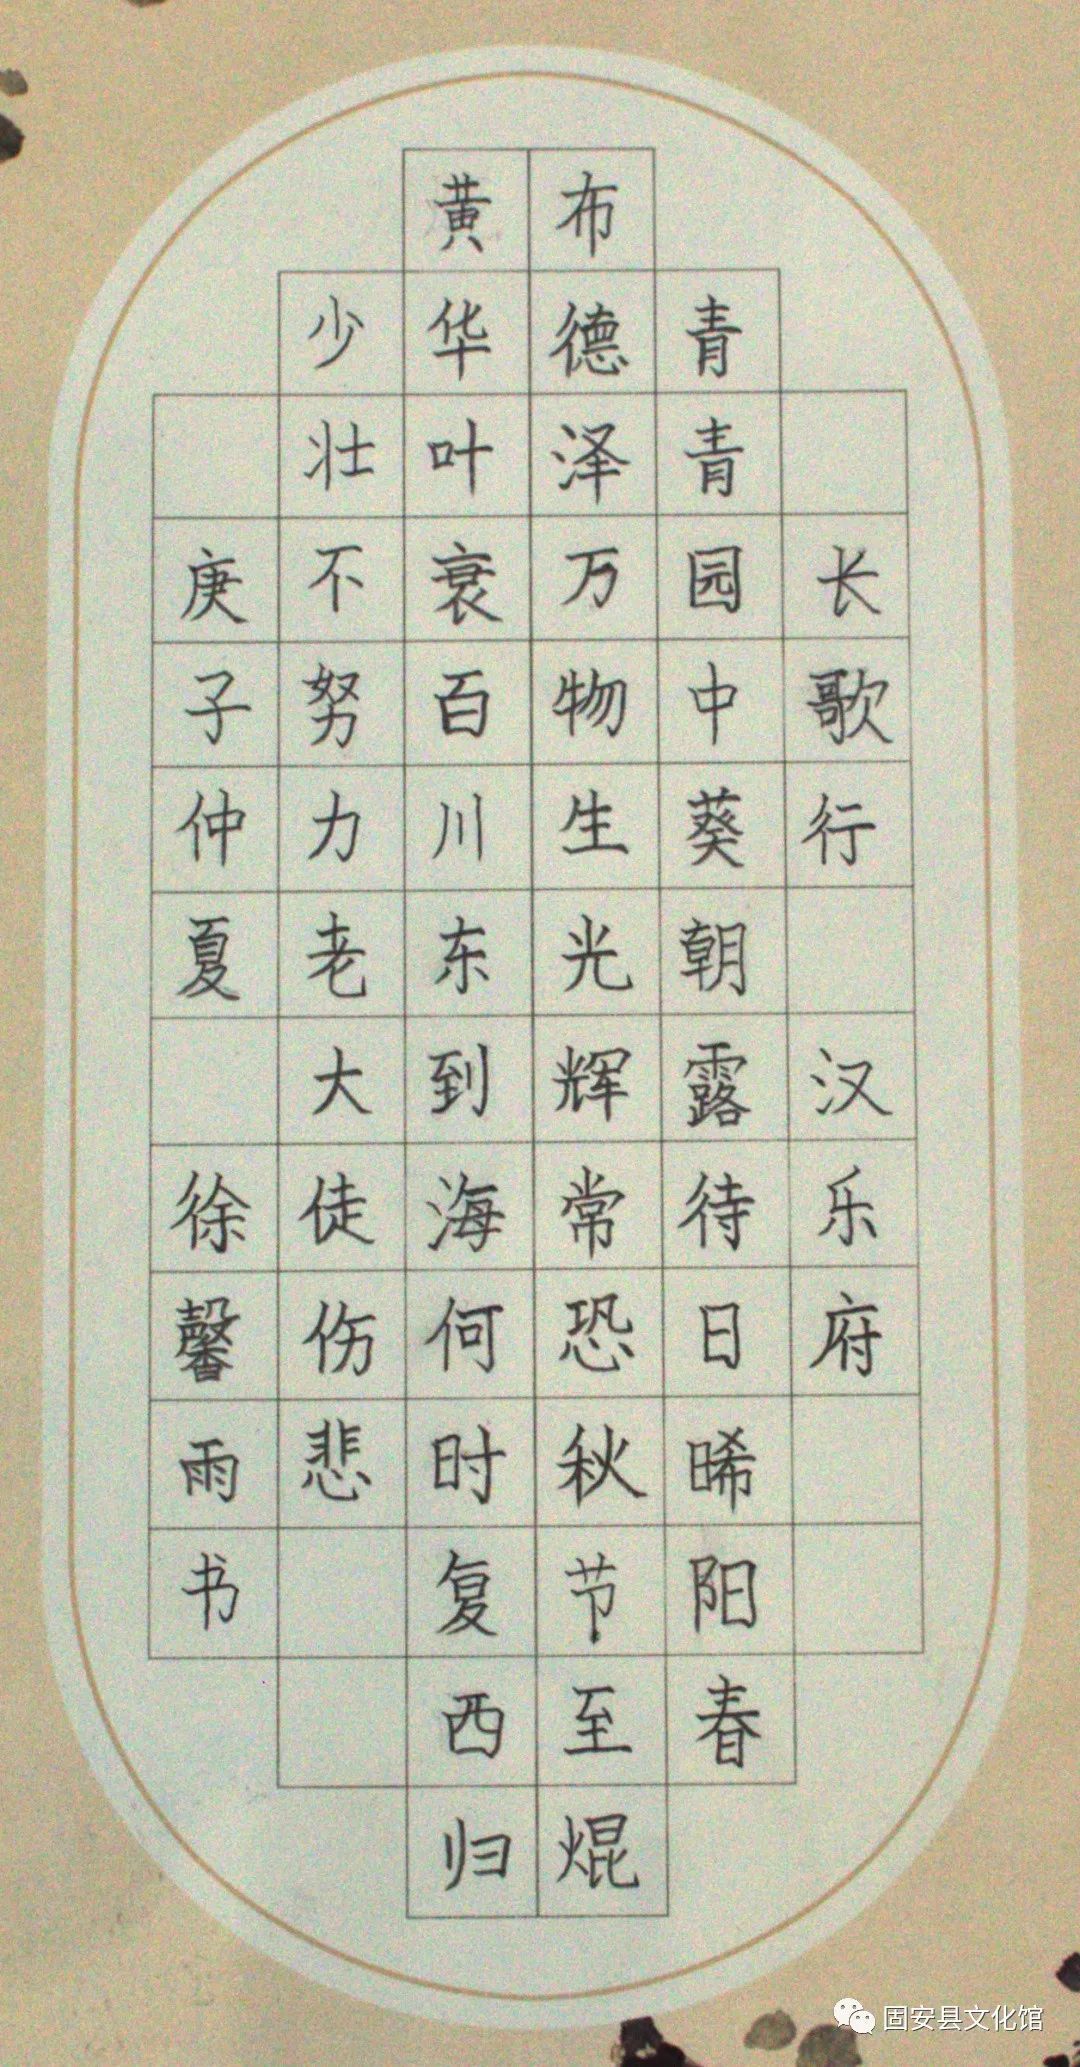 长歌行 汉乐府
青青园中葵朝露待日晞阳春
布德泽万物生光辉常恐秋节至焜
黄华叶衰百川东到海何时复西归
少壮不努力老大徒伤悲
庚子仲夏 徐馨雨书
固安县文化馆